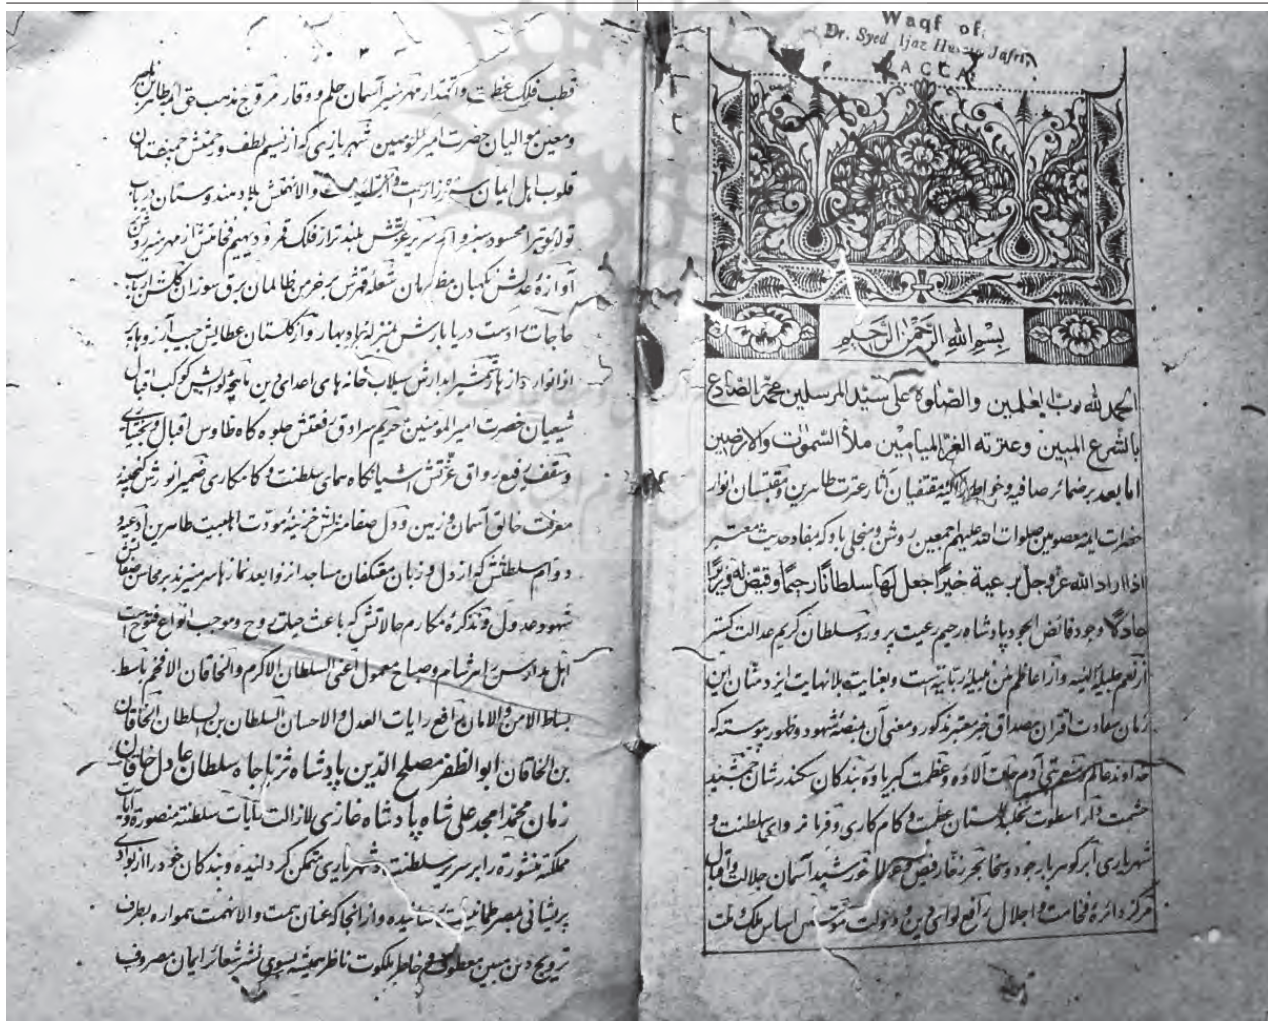 Waqf of:
Dr. Syed Ijaz Husain Jafri,
DACCA
بسم الله الرحمن الرحيم
الحمد لله رب العلمين والصلوة على سيد المرسلين محمد الصادع
بالشرع المبين وعترته الغر الميامين ملأ السموات والارضين
اما بعد بر ضمائر صافيه و خواطر زاكيه مقتفيان آثار عترت طاهرين و مقتبسان انوار
حضرات ايمه معصومين صلوات الله عليهم اجمعين روشن و منجلى باد كه بمفاد حديث معتبر
اذا اراد الله عز وجل برعية خيرا جعل لها سلطانا رحيما وقيض له وزيرا
عادلا وجود فائض الجود پادشاه رحيم رعيت پرور و سلطان كريم عدالت گستر
از نعم جليله الهيه و از اعاظم منن جميله ربانيه است و بعنايت بلا نهايت ايزد منان اين
زمان سعادت اقران مصداق خبر معتبر مذكور و معنى آن بمنصه شهود و ظهور پيوسته كه
خداوند عالم جلت آلاؤه و عظمت كبرياؤه بندگان سكندر شان جمشيد
حشمت دارا سطوت گلستان عظمت و كامكارى و فرمانرواى سلطنت و
شهريارى ابر گوهر بار جود و سخا بحر زخار فيض خورشيد آسمان جلالت و اقبال
مركز دائره فخامت و اجلال رافع لواى دين و دولت مؤسس اساس ملك و ملت
قطب فلك عظمت و اقتدار مهر سپهر آسمان حلم و وقار مروج مذهب حق ائمه طاهرين
و معين مواليان حضرت امير المومنين شهريارى كه از نسيم لطف و رحمتش چمنستان
قلوب اهل ايمان والانهمتش بلاد هندوستان
تولا و تبرا محسود سبزوار سرير عزتش بلند تر از فلك قمر و ديهيم فخامتش از مهر منير روشن
آوازه عدلش نگهبان مظلومان شعله قهرش بر خرمن ظالمان برق سوزان گلشن ارباب
حاجات را دست دريا بارش بمنزله باد بهار و از گلستان عطايش جيب آرزوها پر
از انوار و ازهار شمشير آبدارش سيلاب خانه هاى اعداى دين ناصيه نوايش كوكب اقبال
شيعيان حضرت امير المومنين حريم سرادق رفعتش جلوه گاه طاوس اقبال و بختيارى
و سقف رفيع رواق عزتش آشيانگاه هماى سلطنت و كامكارى ضمير انورش گنجينه
معرفت خالق آسمان و زمين و دل صفا منزلش خزينه مودت اهلبيت طاهرين ادعيه
دوام سلطنتش كه از دل و زبان معتكفان مساجد انزوا بعد نمازها سر ميزند بر محاسن صفاتش
شهود عدول و تذكره مكارم حالاتش كه باعث حيات روح و موجب انواع فتوح است
اهل مدارس را هر شام و صباح معمول اعنى السلطان الاكرم والخاقان الافخم باسط
بساط الامن والامان رافع رايات العدل والاحسان السلطان بن السلطان الخاقان
بن الخاقان ابو الظفر مصلح الدين پادشاه ثريا جاه سلطان عادل خاقان
زمان محمد امجد على شاه پادشاه غازى لازالت رايات سلطنته منصورة و آيات
مملكته منشورة را بر سرير سلطنت و شهريارى متمكن گردانيده و بندگان خود را از بوادى
پريشانى بمصر طمانينت رسانيده و از آنجا كه عنان همت والا نهمت همواره بطرف
ترويج دين مبين معطوف و خاطر ملكوت ناظر هميشه بسوى نشر شعائر ايمان مصروف